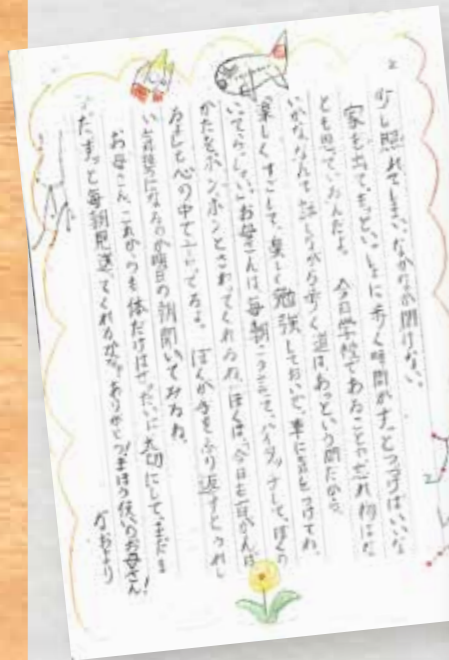 2
少し照れてしまい、なかなか聞けない。
家を出て、もっといっしょに歩く時間がずっとつづけばいいな
とも思っているんだよ。今日学校であることや忘れ物はな
いかななんて話しながら歩く道は、あっという間だから。
「楽しくすごして、楽しく勉強しておいで。車に気をつけてね。
いってらっしゃい。」お母さんは毎朝こう言って、ハイタッチして、ぼくの
かたをポンポンとさわってくれるね。ぼくは、今日も一日がんば
るよと心の中で言ってるよ。ぼくが手をふり返すとうれし
い気持ちになるのか明日の朝聞いてみるね。
お母さん、これからも体だけはぜったいに大切にして、まだま
だずっと毎朝見送ってくれるかな。ありがとう!まほう使いのお母さん!
かおより